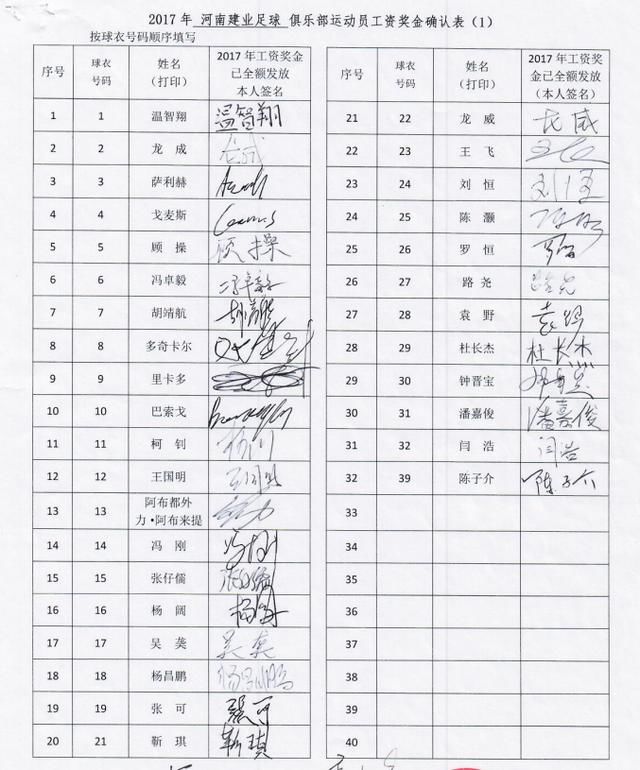 2017 年 河南建业足球 俱乐部运动员工资奖金确认表（1）
按球衣号码顺序填写
序号 球衣号码 姓名（打印） 2017 年工资奖金已全额发放本人签名
1 1 温智翔 温智翔
2 2 龙 成 龙成
3 3 萨利赫
4 4 戈麦斯
5 5 顾 操 顾操
6 6 冯卓毅 冯卓毅
7 7 胡靖航 胡靖航
8 8 多奇卡尔
9 9 里卡多
10 10 巴索戈
11 11 柯 钊
12 12 王国明 王国明
13 13 阿布都外力·阿布来提
14 14 冯 刚 冯刚
15 15 张仔儒
16 16 杨 阔 杨阔
17 17 吴 龑 吴龑
18 18 杨昌鹏 杨昌鹏
19 19 张 可 張可
20 21 靳 琪 靳琪
序号 球衣号码 姓名（打印） 2017 年工资奖金已全额发放（本人签名）
21 22 龙 威 龙威
22 23 王 飞
23 24 刘 恒 刘恒
24 25 陈 灏
25 26 罗 恒 罗恒
26 27 路 尧 路尧
27 28 袁 野 袁野
28 29 杜长杰 杜长杰
29 30 钟晋宝
30 31 潘嘉俊 潘嘉俊
31 32 闫 浩 闫浩
32 39 陈子介 陈子介
33
34
35
36
37
38
39
40